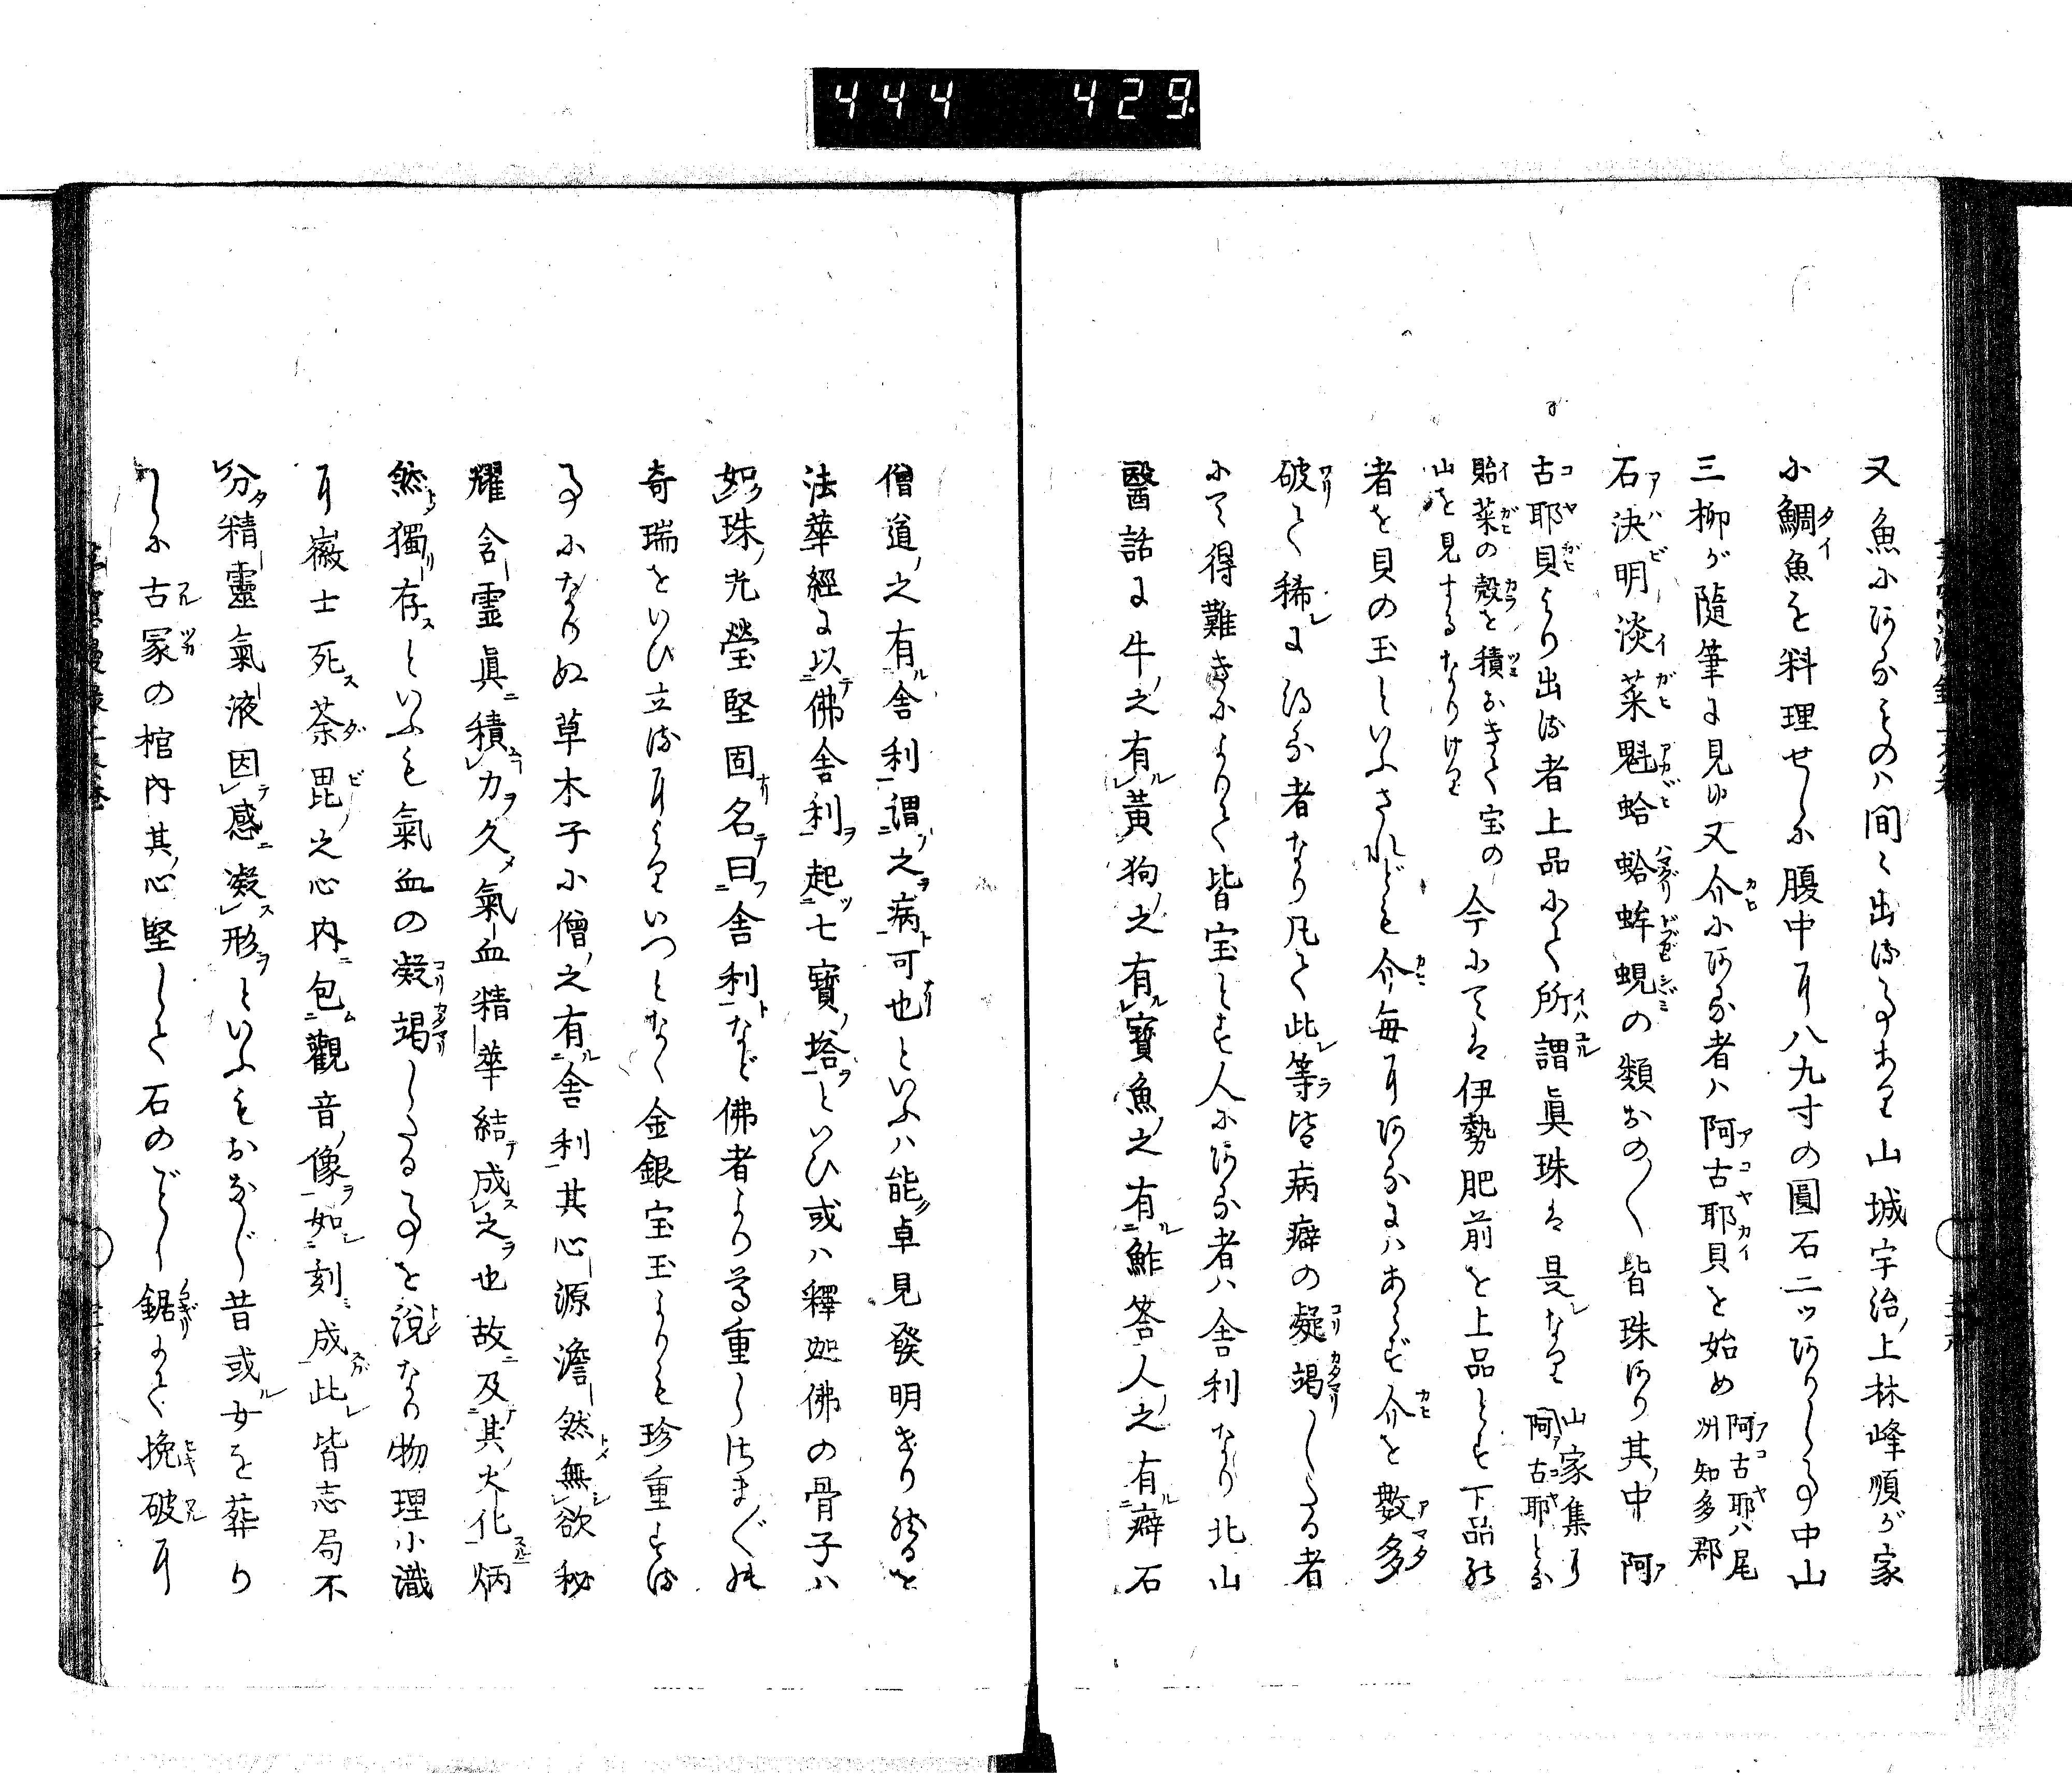 444 429
又魚にあるものハ間〻出る事あり山城宇治ノ上林峰順が家
に鯛魚を料理せしに腹中に八九寸の圓石二ツありし事中山
三柳が隨筆に見ゆ又介にある者ハ阿古耶貝を始め阿古耶ハ尾州知多郡
石決明淡菜魁蛤蛤蚌蜆の類おの〱皆珠あり其中阿
古耶貝より出る者上品にて所謂眞珠は是なり山家集に阿古耶とる
貽菜の殻を積おきて宝の山を見するなりけり今にては伊勢肥前を上品とす下品の
者を貝の玉といふされども介毎にあるにハあらず介を數多
破て稀に得る者なり凡て此等皆病癖の凝竭したる者
にて得難きによりて皆宝とす人にある者ハ舎利なり北山
醫話に牛之有黃狗之有寶魚之有鮓答人之有癖石
僧道之有舎利謂之病可也といふハ能卓見發明せり然るを
法華經に以佛舎利起七寶塔といひ或ハ釋迦佛の骨子ハ
如珠光瑩堅固名曰舎利など佛者より尊重しさま〲の
奇瑞をいひ立るによりいつとなく金銀宝玉よりも珍重する
事になりぬ草木子に僧之有舎利其心源澹然無欲秘
耀含霊眞積力久氣血精華結成之也故及其火化炳
然獨存といふも氣血の凝竭したる事を説なり物理小識
に徽士死荼毘之心内包觀音像如刻成此皆志局不
分精靈氣液因感凝形といふもおなじ昔或女を葬り
しに古冢の棺内其心堅して石のごとし鋸にて挽破に